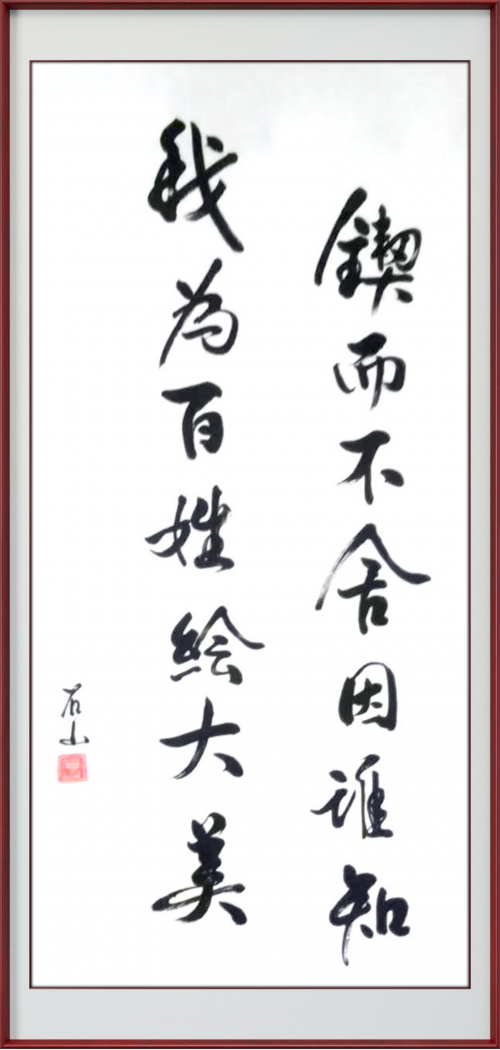 锲而不舍因谁知
我为百姓绘大美
石山